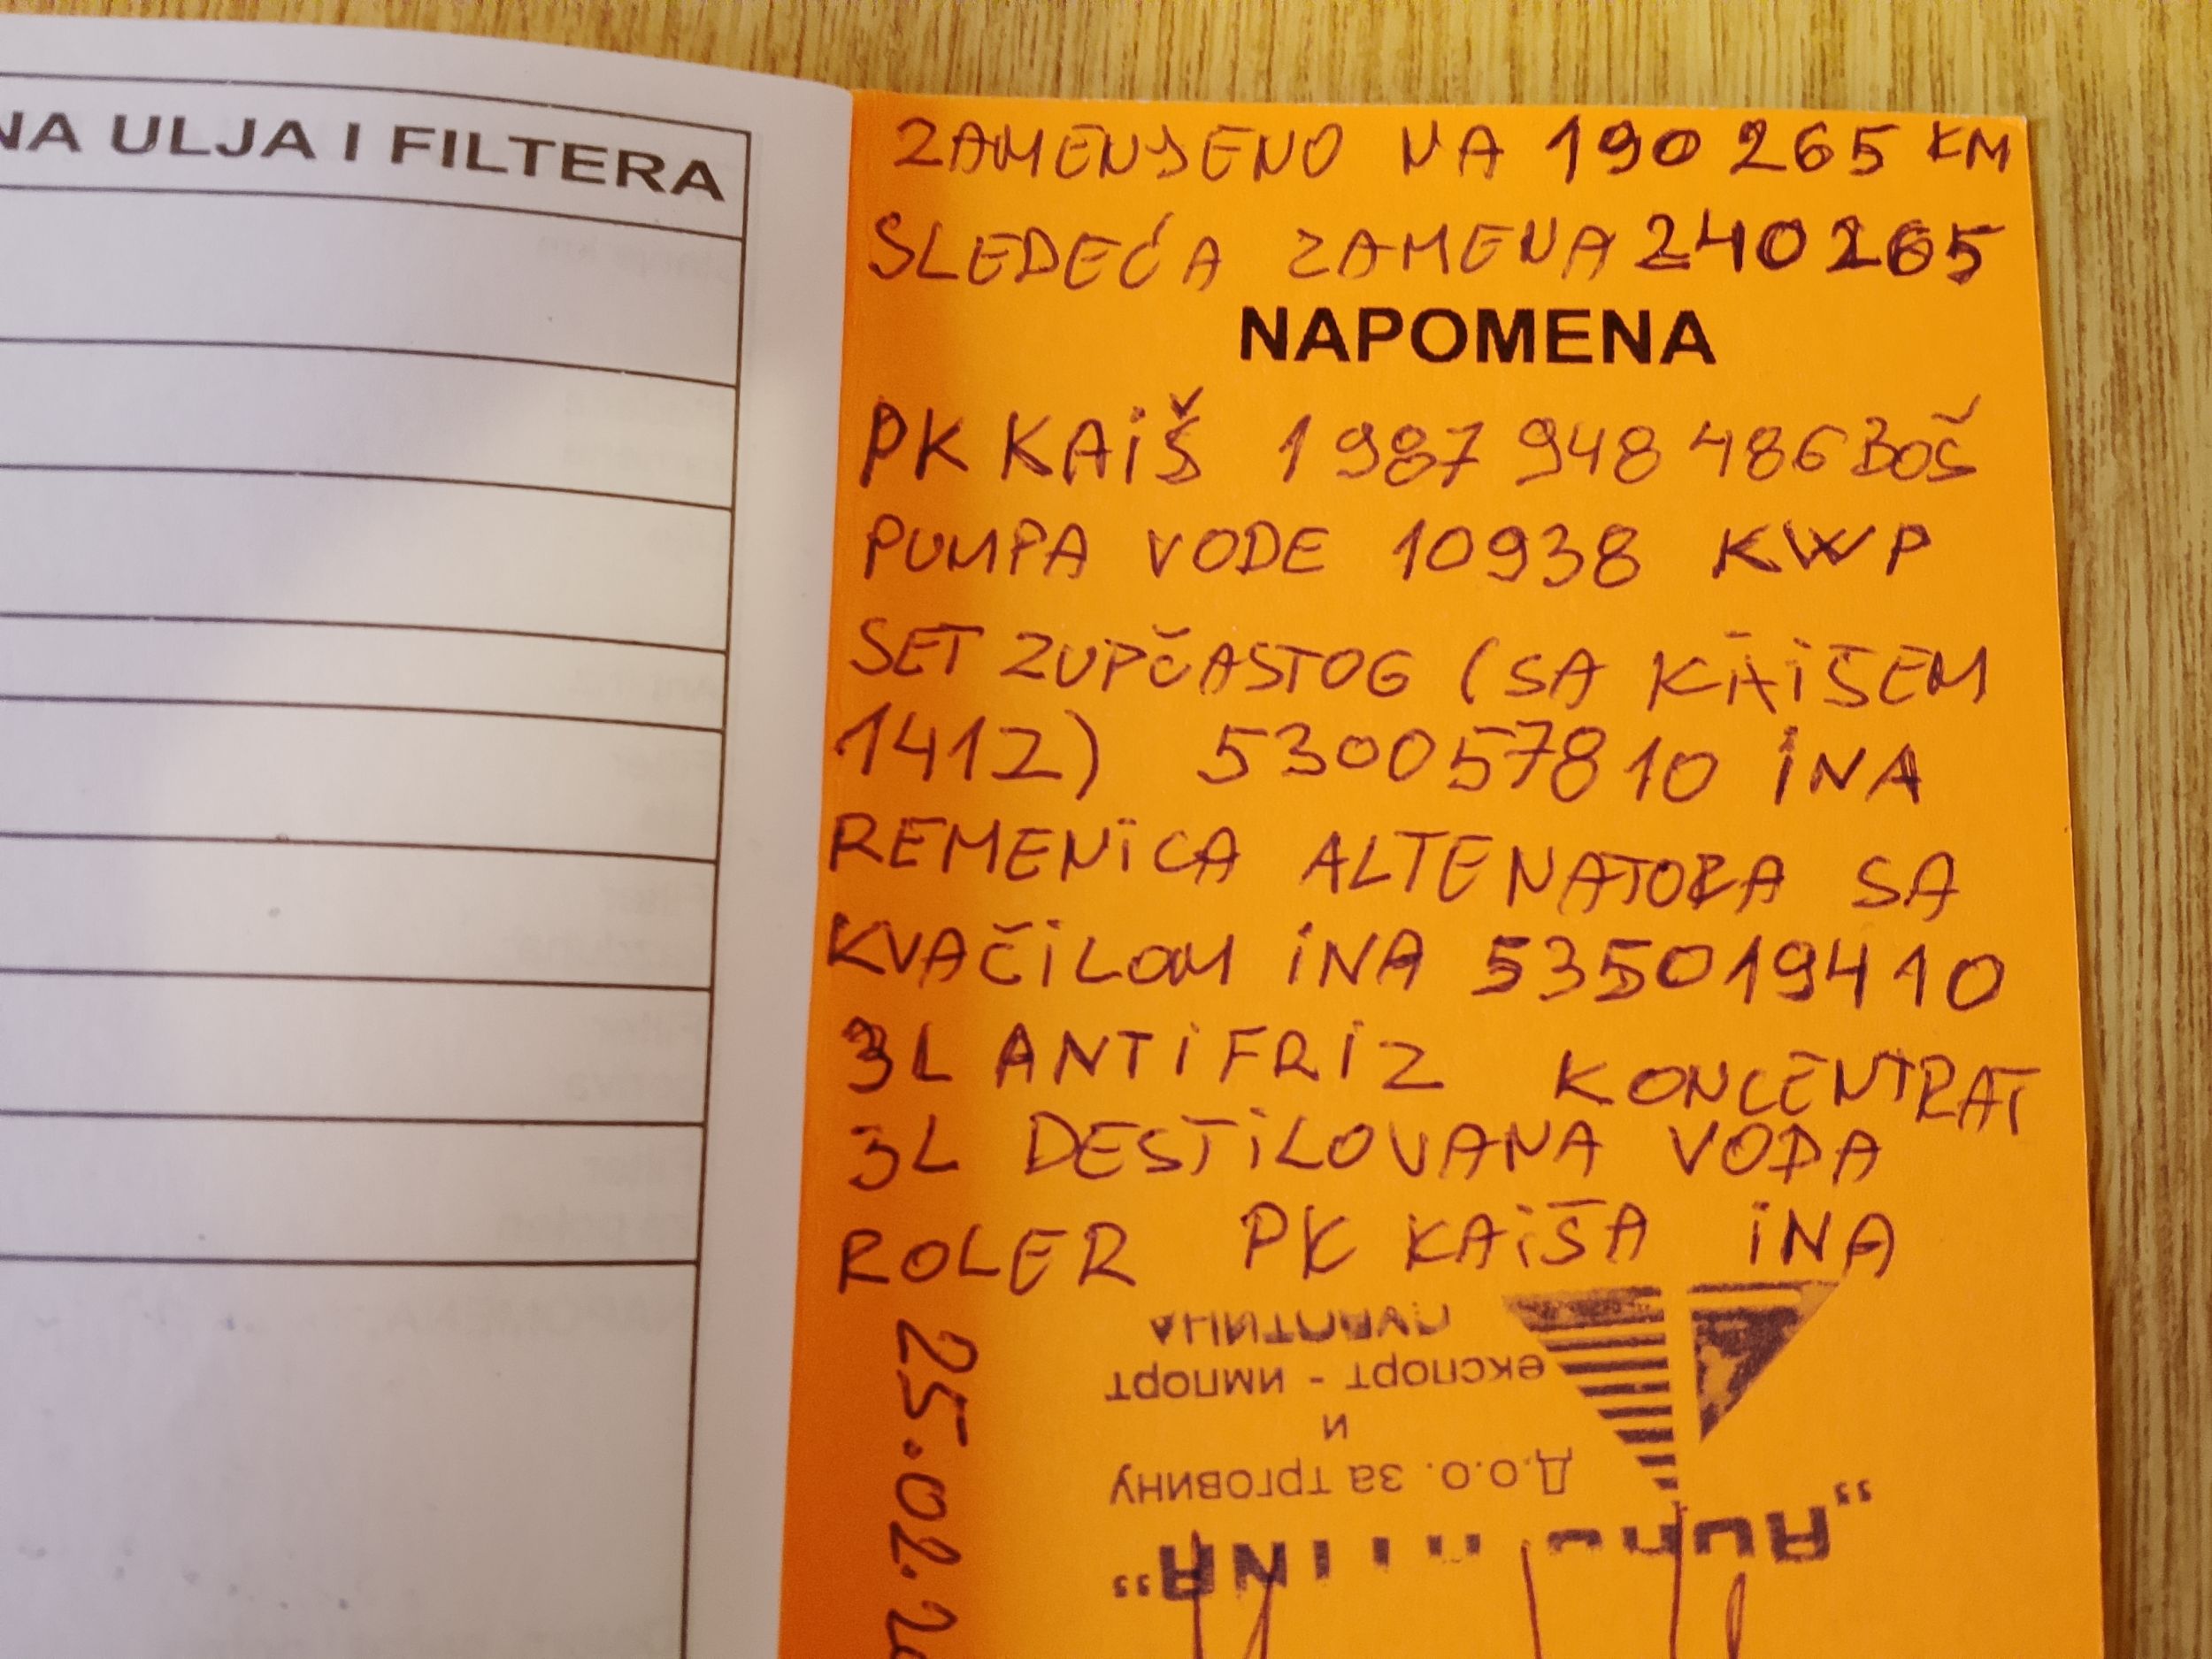 NA ULJA I FILTERA
ZAMENJENO NA 190 265 KM
SLEDEĆA ZAMENA 240265
NAPOMENA
PK KAIŠ 1987 948 486 BOŠ
PUMPA VODE 10938 KWP
SET ZUPČASTOG (SA KAIŠEM
141Z) 530057810 INA
REMENICA ALTENATORA SA
KVAČILOM INA 535019410
3L ANTIFRIZ KONCENTRAT
3L DESTILOVANA VODA
ROLER PK KAIŠA INA
25.02.2
експорт - импорт
и
Д.о.о. за трговину